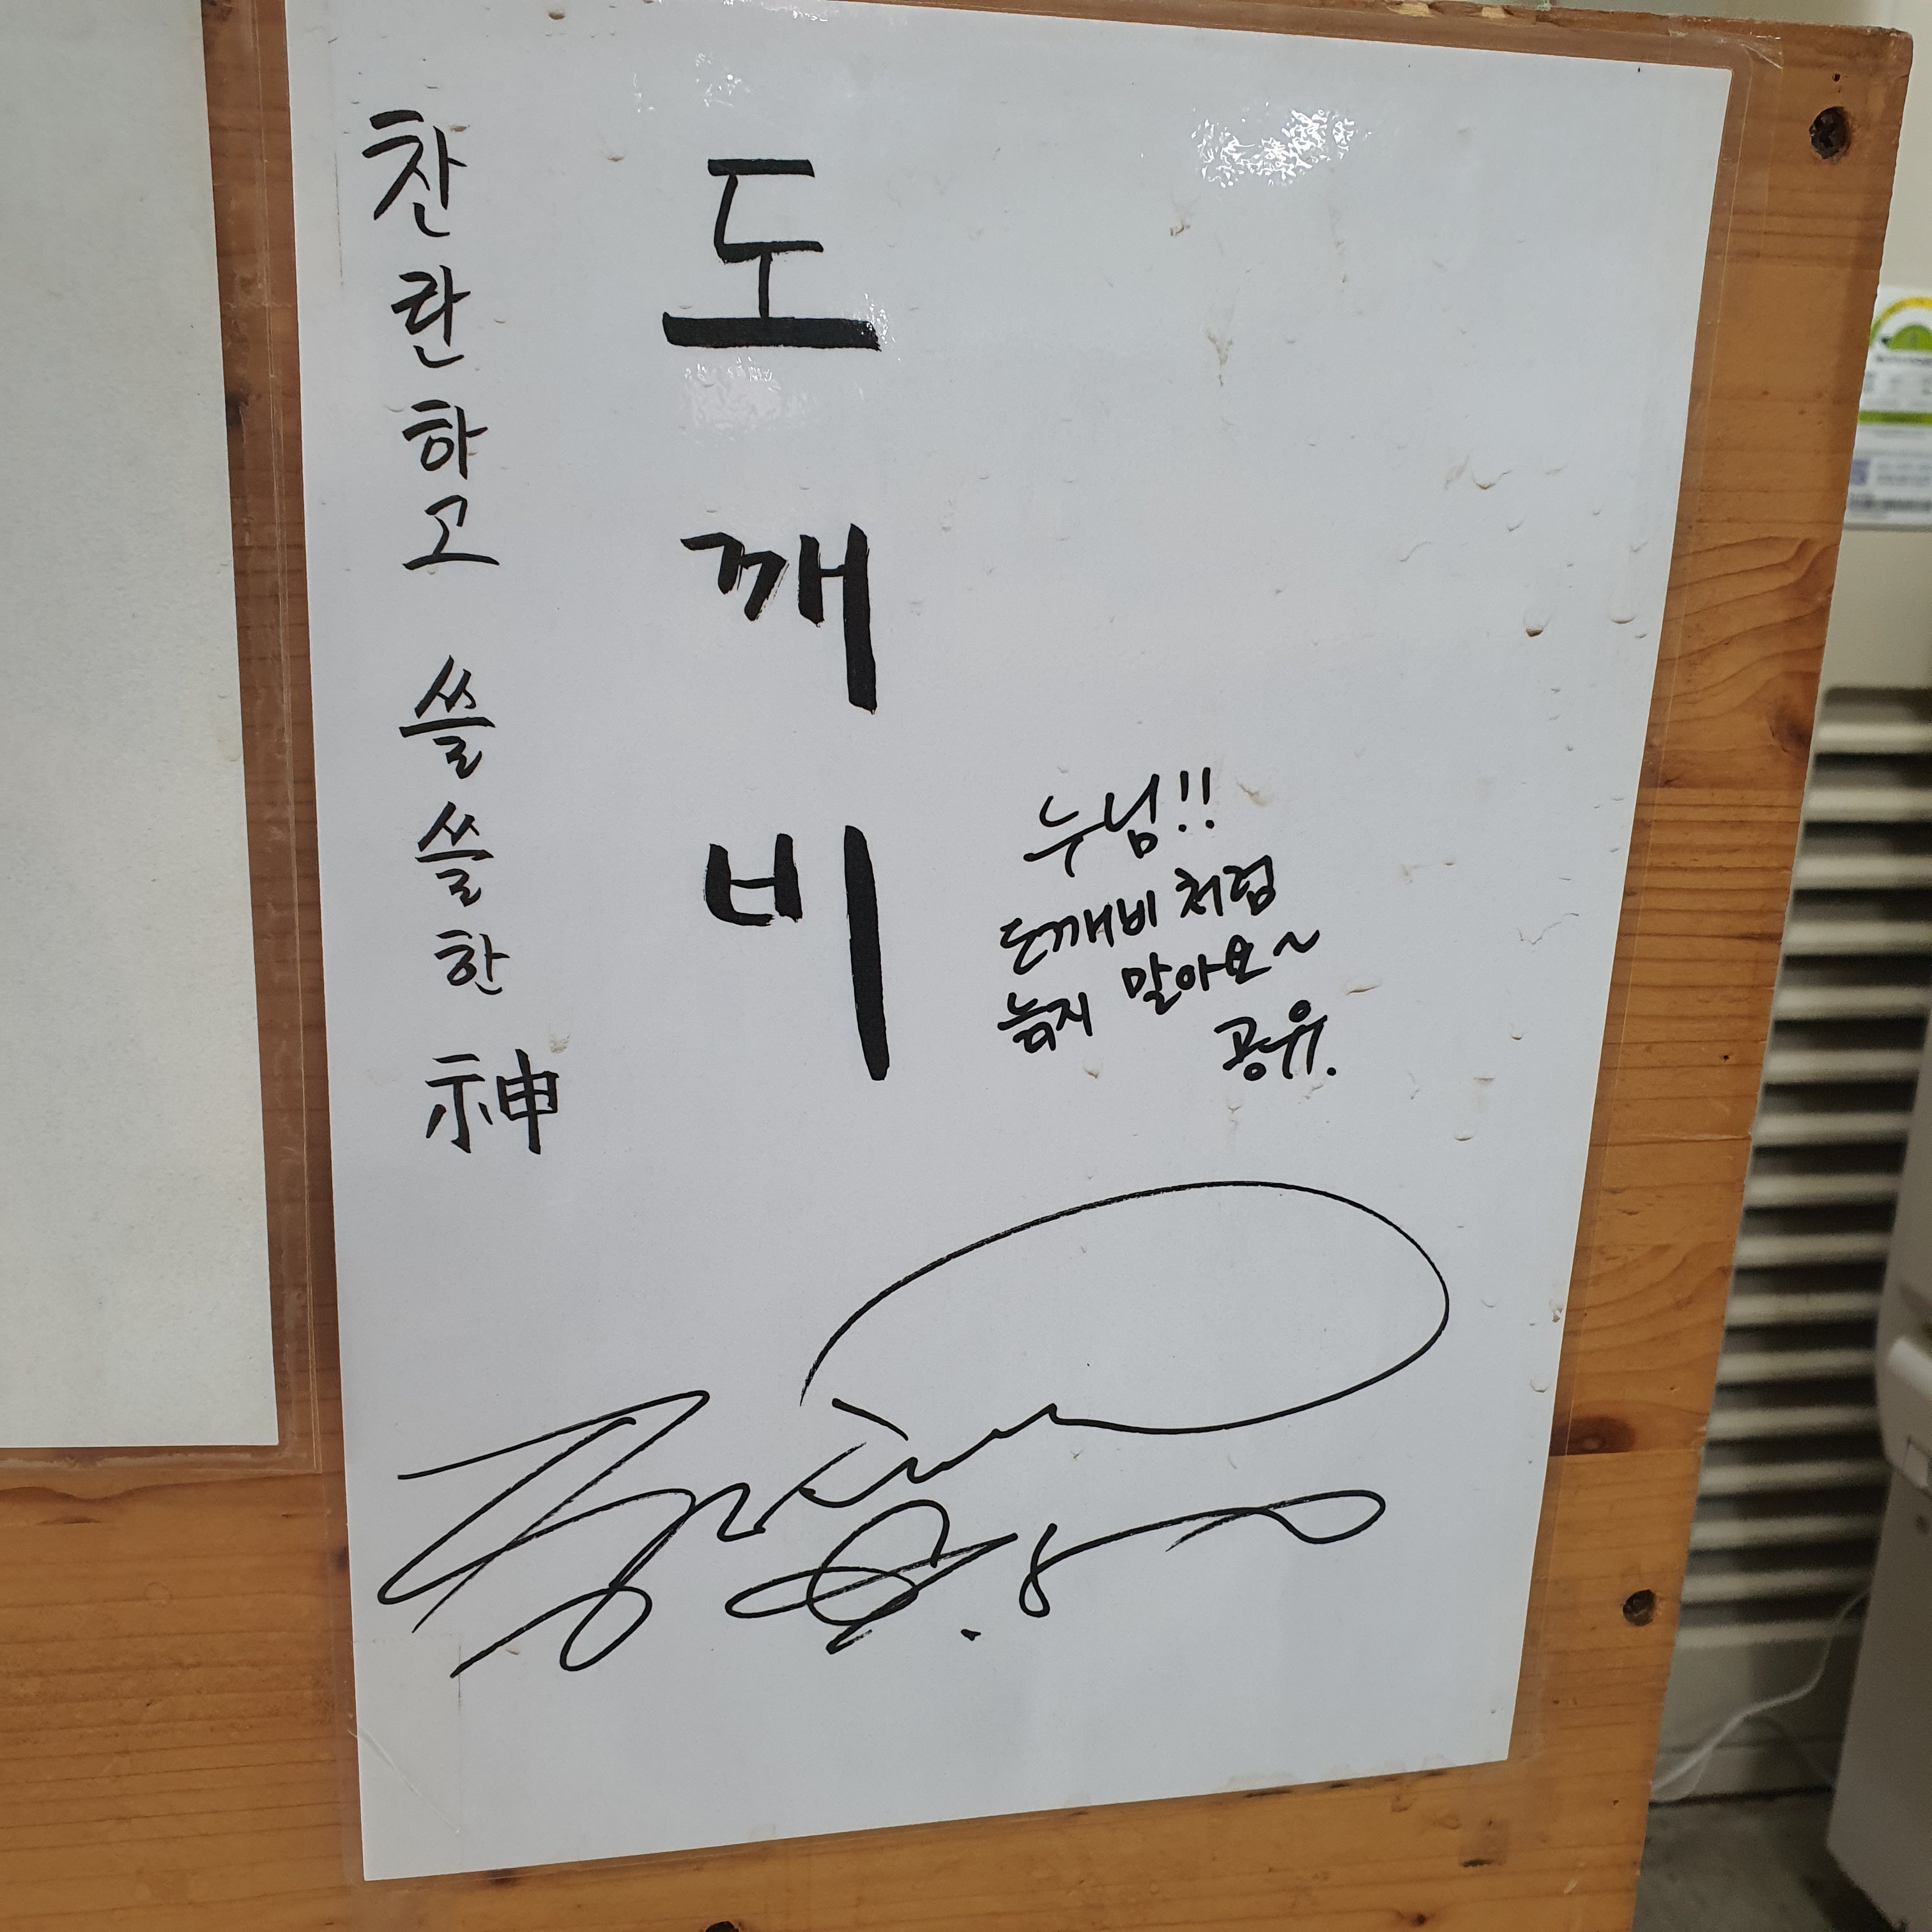 찬란하고 쓸쓸한 神
도깨비
누님!!
도깨비처럼
늙지 말아요~
공유.